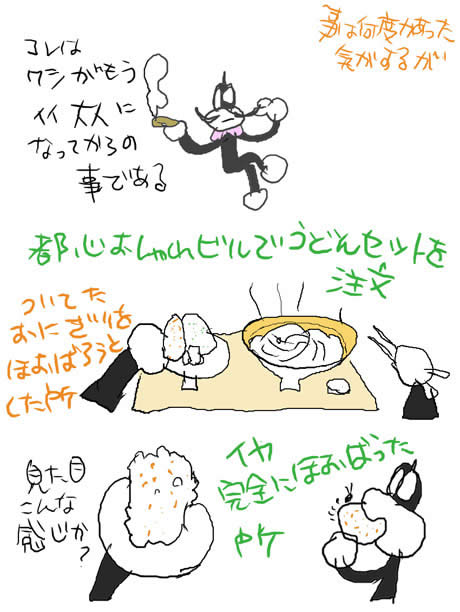 コレは
ワシがもう
イイ大人に
なってからの
事である
事は何度かあった
気がするが
都心おしゃれビルでうどんセットを
注文
ついてた
おにぎりを
ほおばろうと
した所
見た目
こんな
感じか?
イヤ
完全にほおばった
所